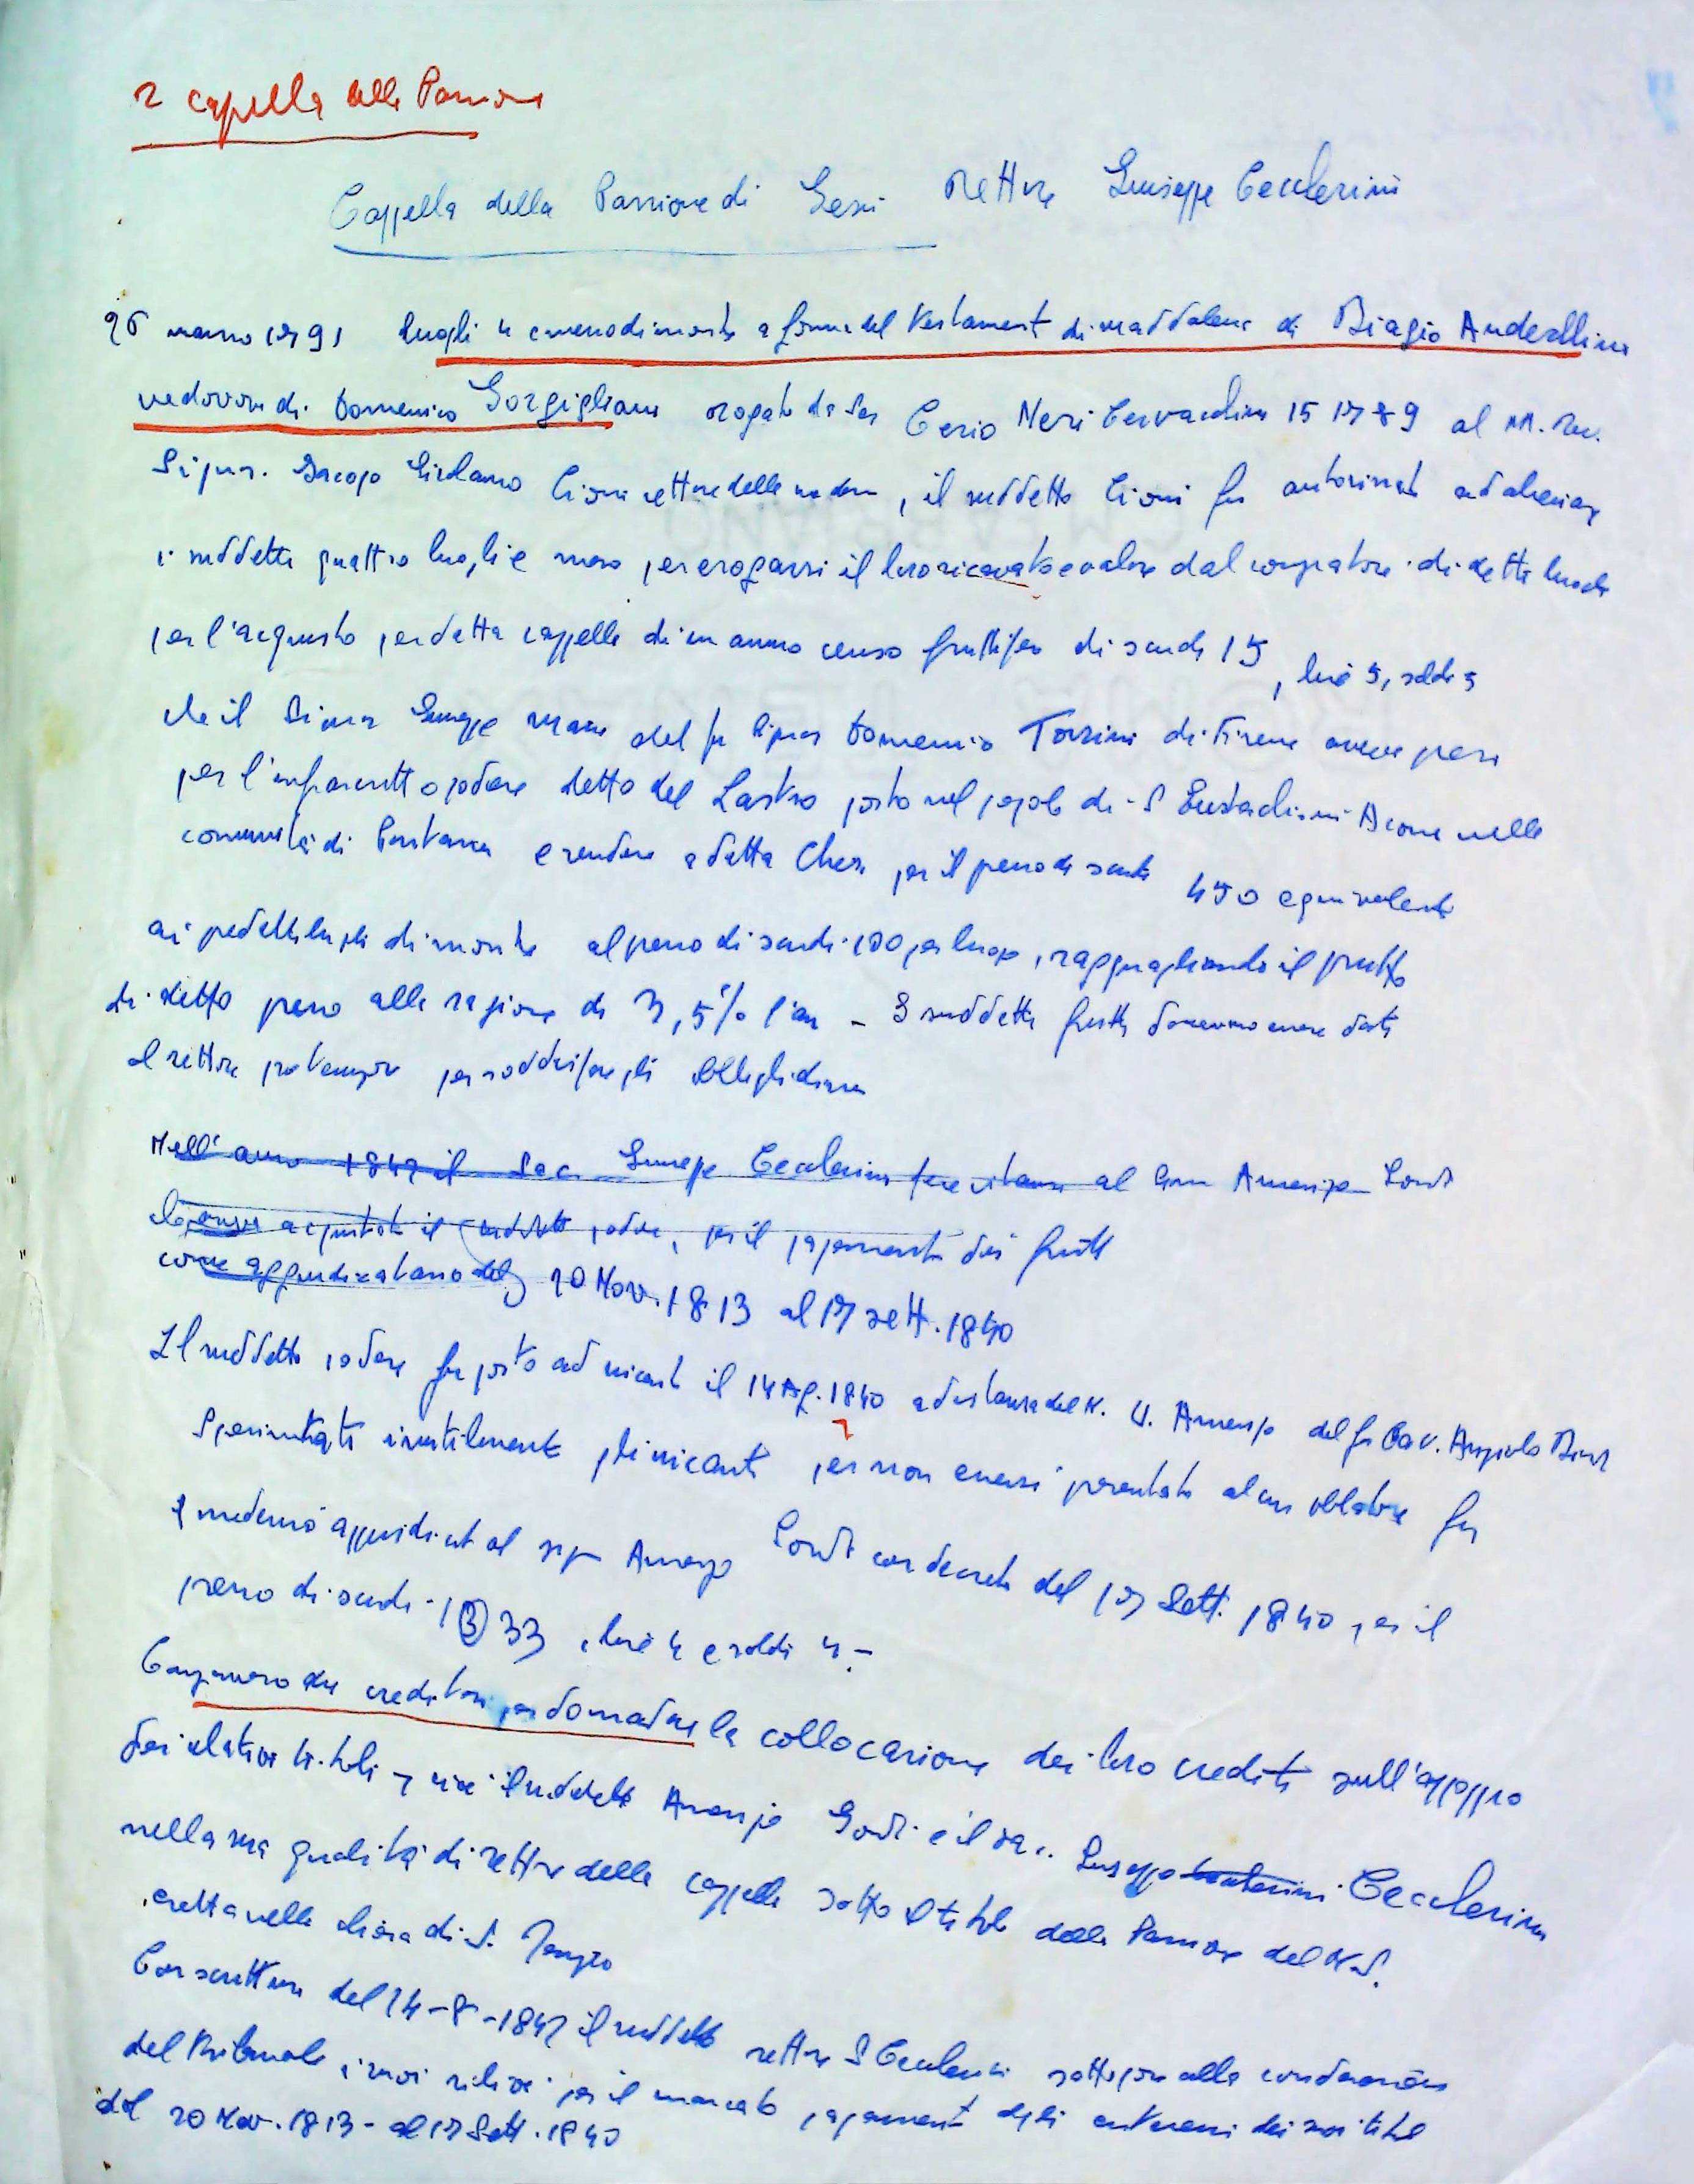 2 cappella della Passione
Cappella della Passione di Gesù Rettore Giuseppe Ceccherini
26 marzo 1791 luoghi 4 e mezzo di monte a forma del testamento di Maddalena di Biagio Anderllini
vedova di Domenico Gorgigliani rogato da Ser Cerio Neri 15 1789 al M. Rev.
Signor. Jacopo Girolamo Cioni rettore della medesima, il suddetto Cioni fu autorizzato ad alienare
i suddetti quattro luoghi e mezzo per erogarsi il loro ricavato e valore dal compratore di detti luoghi
per l'acquisto per detta cappella di un annuo censo fruttifero di scudi 15, lire 5, soldi 5
che il Signor Giuseppe del fu Signor Domenico Torrini di Firenze aveva
per l'infrascritto podere detto del Lastro posto nel popolo di S Eustachio in Acone nella
comunità di Pontassieve e vendere a detta Chiesa per il prezzo di scudi 450 equivalente
ai predetti luoghi di monte al prezzo di scudi 100 per luogo, ragguagliando il frutto
di detto prezzo alla ragione di 3,5% l'anno - I suddetti frutti dovevano essere dati
al rettore pro tempore per soddisfare gli obblighi di messa
Nell'anno 1847 il Sac. Giuseppe Ceccherini al Sign Amerigo Gondi
acquistato il suddetto podere, per il pagamento dei frutti
come aggiudicatario dal 20 Nov. 1813 al 17 sett. 1840
Il suddetto podere fu posto ad incanto il 14 Ag. 1840 ad istanza del N. U. Amerigo del fu Cav. Angiolo
Sperimentati inutilmente gli incanti per non essersi presentato alcun oblatore fu
il medesimo aggiudicato al sign Amerigo Gondi con decreto del 17 Sett. 1840 per il
prezzo di scudi 1333, lire 4 e soldi 4.-
Comparvero due creditori per domandare la collocazione dei loro crediti sull'appoggio
dei relativi titoli, cioè il suddetto Amerigo Gondi e il sac. Giuseppe Ceccherini
nella sua qualità di rettore della cappella sotto il titolo della Passione del N.S.
eretta nella chiesa di S.
Con scrittura del 14-8-1847 il suddetto rettore S Ceccherini sottopone alla considerazione
del Tribunale i suoi rilievi per il mancato pagamento degli interessi dei suoi titoli
dal 20 Nov. 1813 - al 17 Sett. 1840